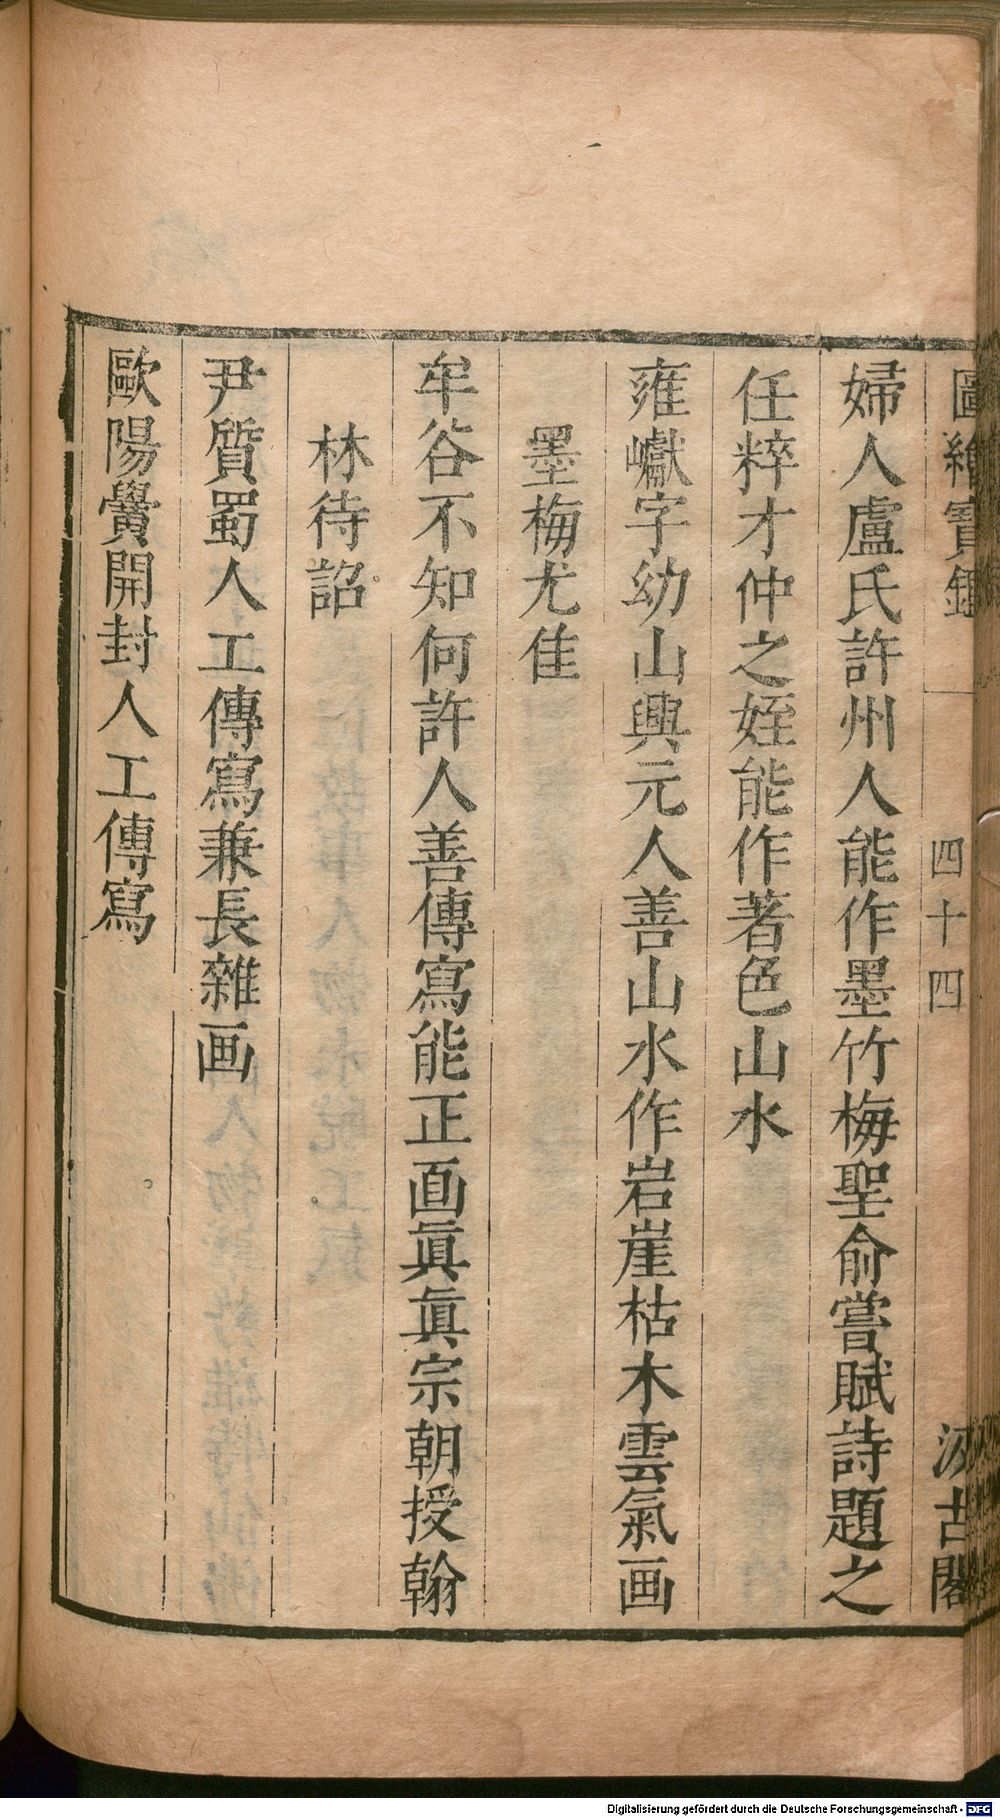 圖繪寶鑑 四十四 汲古閣
婦人盧氏許州人能作墨竹梅聖俞嘗賦詩題之
任粹才仲之姪能作著色山水
雍巘字幼山興元人善山水作岩崖枯木雲氣画
墨梅尤佳
牟谷不知何許人善傳寫能正面眞眞宗朝授翰
林待詔
尹質蜀人工傳寫兼長雜画
歐陽黌開封人工傳寫
Digitalisierung gefördert durch die Deutsche Forschungsgemeinschaft - DFG